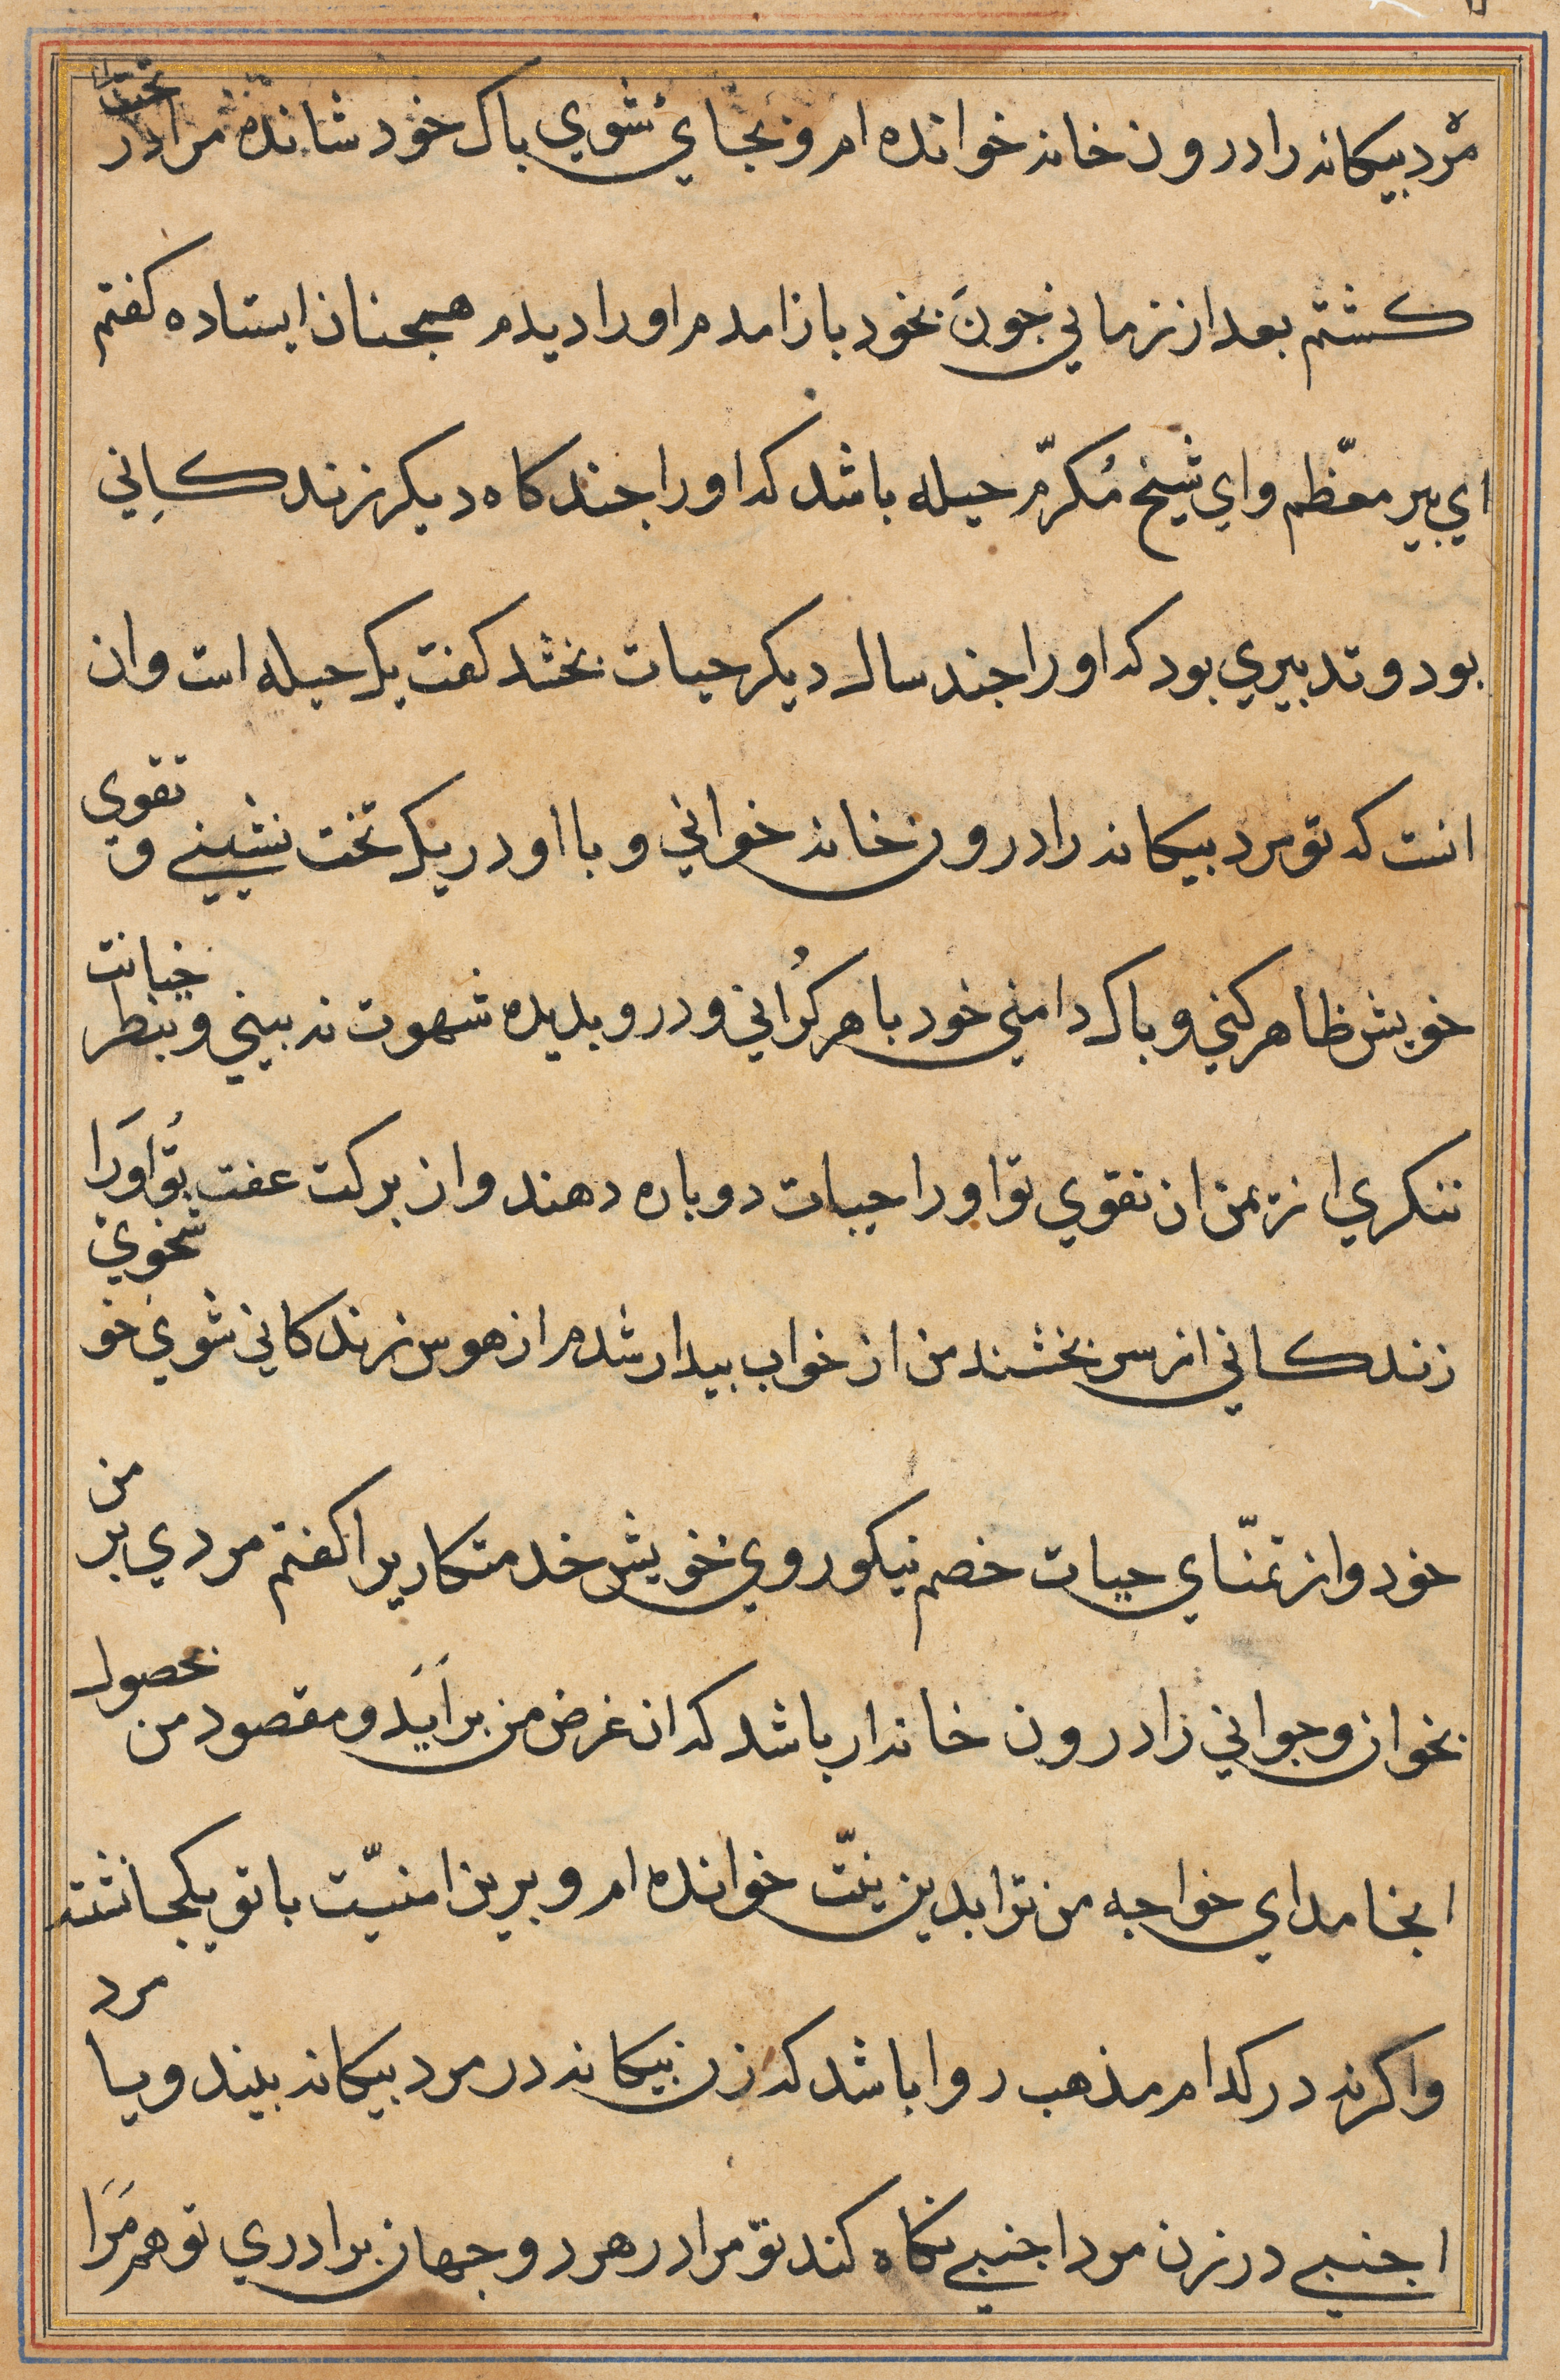 مرد بیکانه را درون خانه خوانده ام و بجای شوی باک خود شانده مرا در تحت
کشتم بعد از زمانی جون بخود باز امدم او را دیدم همجنان ایستاده کفتم
ای پیر معظّم و ای شیخ مُکرّم حیله باشد که او را جند کاه دیکر زندکانِی
بود و تدبیری بود که او را جند سال دیکر حیات بخشد کفت یک حیله است و ان
انست که تو مرد بیکانه را درون خانه خوانی و با او در یک تخت نشینے و تقوی
خویش ظاهر کنی و باک دامنی خود باهر کُرانی و در و بدیده شهوت نه بینی و بنظر خیانت
ننکری از یمن ان تقوی تو او را حیات دوباره دهند و از برکت عفت تُو اوَرا
زندکانی از سر بخشند من از خواب بیدار شدم از هوس زندکانی شوی خو نخوی
خود و از تمنّای حیات خصم نیکوروی خویش خدمتکاریرا کفتم مردی بر من
بخوان و جوانی را درون خانه ار باشد که ان غرض من براَیَد و مقصود من بحصول
انجامد ای خواجه من ترا بدین نیّت خوانده ام و برین امنیّت با تو یکجا نشته
و اکرنه در کدام مذهب روا باشد که زن بیکانه در مرد بیکانه بیند و یا مرد
اجنبے در زن مرد اجنبے نکاه کند تو مرا در هر دو جهان برادری تو هم مَرَا